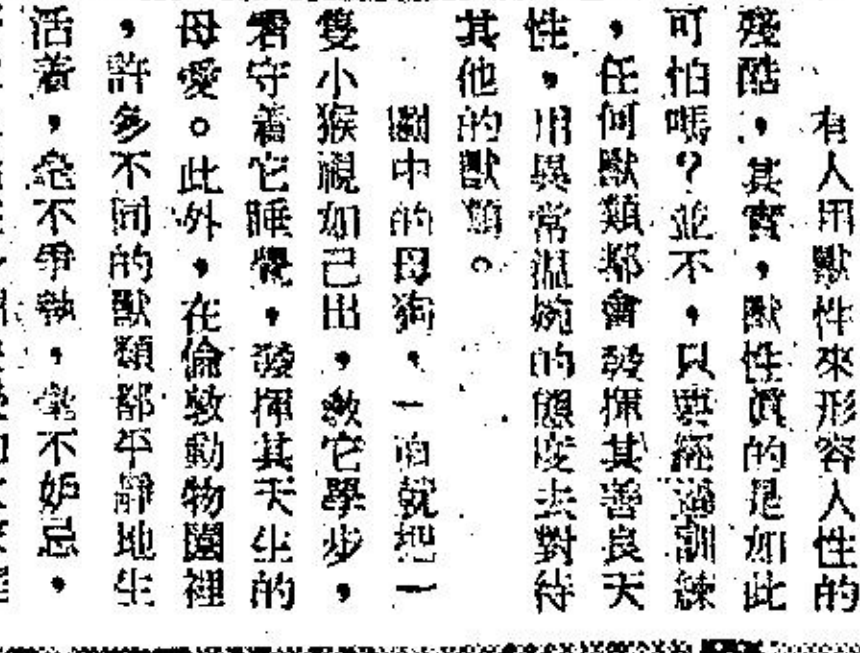 有人用獸性來形容人性的
殘酷，其實，獸性真的是如此
可怕嗎？並不，只要經過訓練
，任何獸類都會發揮其善良天
性，用異常溫婉的態度去對待
其他的獸類。
圖中的母狗，一直就把一
隻小猴視如己出，教它學步，
看守着它睡覺，發揮其天生的
母愛。此外，在倫敦動物園裡
，許多不同的獸類都平靜地生
活着，毫不爭執，毫不妒忌，